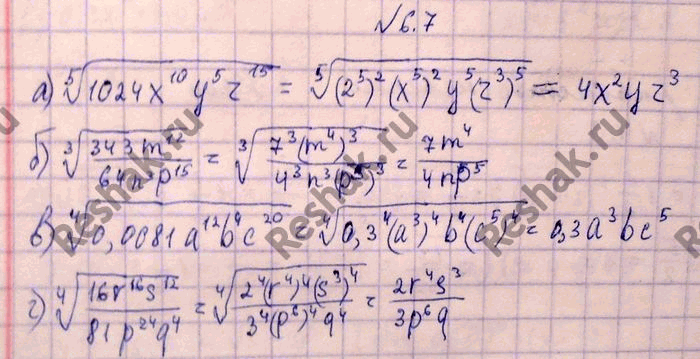 №6.7
а) ⁵√(1024x¹⁰y⁵z¹⁵) = ⁵√((2⁵)²(x⁵)²y⁵(z³)⁵) = 4x²yz³
б) ³√(343m¹²/(64n³p¹⁵)) = ³√(7³(m⁴)³/(4³n³(p⁵)³)) = 7m⁴/(4np⁵)
в) ⁴√(0,0081a¹²b⁴c²⁰) = ⁴√(0,3⁴(a³)⁴b⁴(c⁵)⁴) = 0,3a³bc⁵
г) ⁴√(16r¹⁶s¹²/(81p²⁴q⁴)) = ⁴√(2⁴(r⁴)⁴(s³)⁴/(3⁴(p⁶)⁴q⁴)) = 2r⁴s³/(3p⁶q)
Reshak.ru
Reshak.ru
Reshak.ru
Reshak.ru